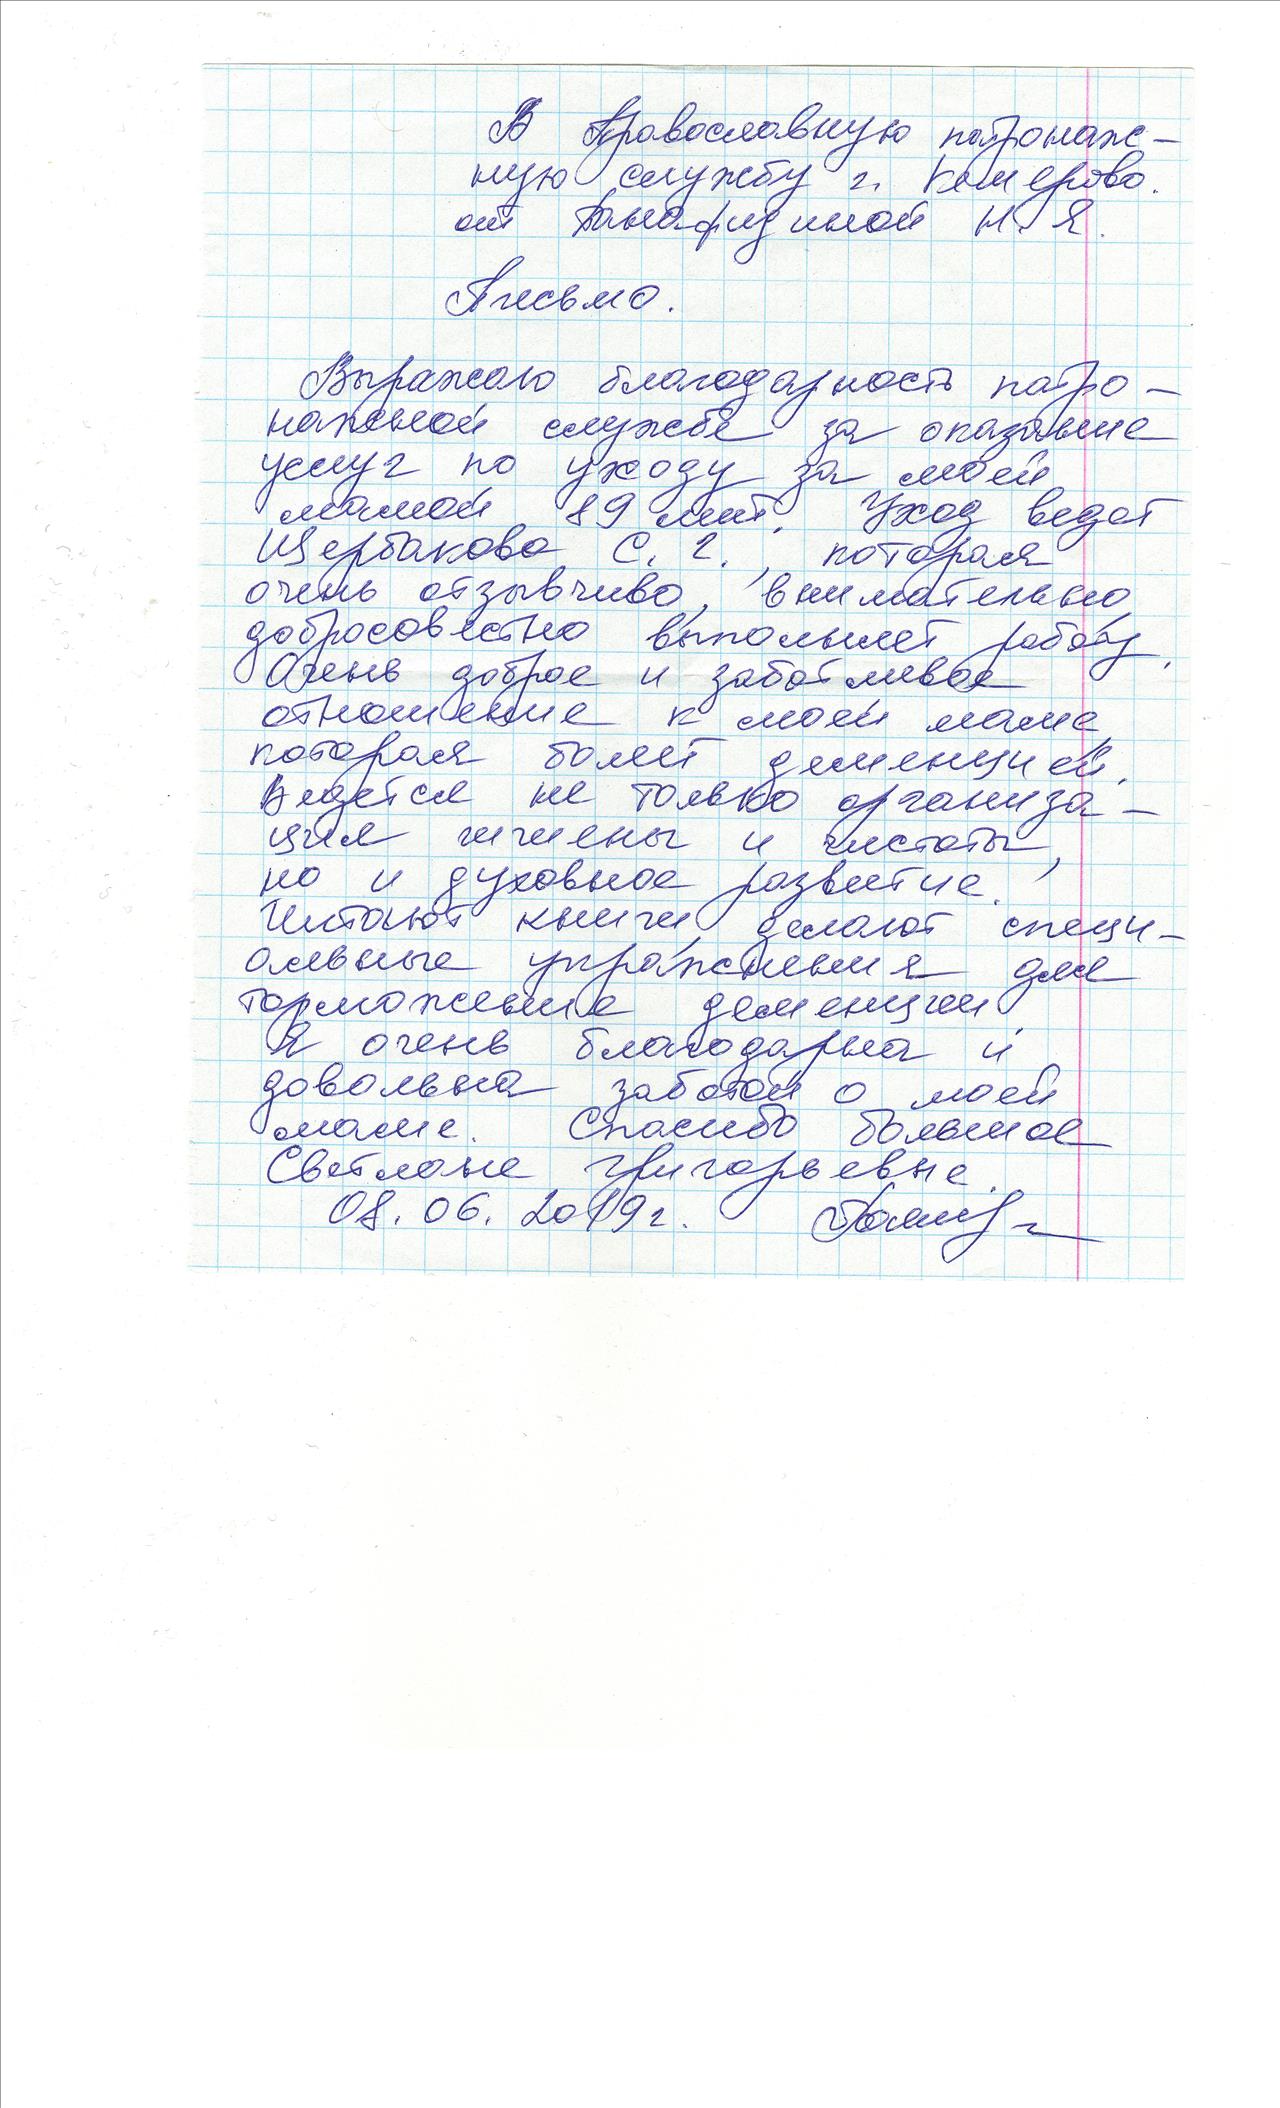 В Православную патронаж-
ную службу г. Кемерово.
от Панафидиной Н.Я.
Письмо.
Выражаю благодарность патро-
нажной службе за оказание
услуг по уходу за моей
мамой 89 лет. Уход ведет
Щербакова С.Г., которая
очень отзывчиво, внимательно,
добросовестно выполняет работу.
Очень доброе и заботливое
отношение к моей маме,
которая болеет деменцией.
Ведется не только организа-
ция гигиены и чистоты,
но и духовное развитие.
Читают книги, делают специ-
альные упражнения для
торможение деменции
Я очень благодарна и
довольна заботой о моей
маме. Спасибо большое
Светлане Григорьевне.
08.06.2019г.